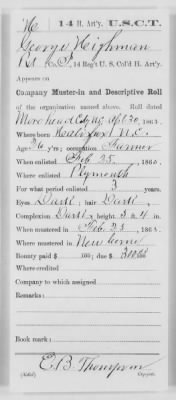 H 14 H. Art'y. U.S.C.T.
George Highman
Pvt, Co. B, 14 Reg't U.S. Col'd H. Art'y.
Appears on
Company Muster-in and Descriptive Roll
of the organization named above. Roll dated
Morehead City NC Apl 30, 1865.
Where born Halifax N.C.
Age 26 y'rs; occupation Farmer
When enlisted Feb 25, 1865.
Where enlisted Plymouth
For what period enlisted 3 years.
Eyes Dark; hair Dark,
Complexion Dark; height 5 ft. 4 in.
When mustered in Feb. 25, 1865.
Where mustered in New Berne
Bounty paid $ 100; due $ 300 100
Where credited
Company to which assigned
Remarks:
Book mark:
E. B. Thompson
(Copyist.